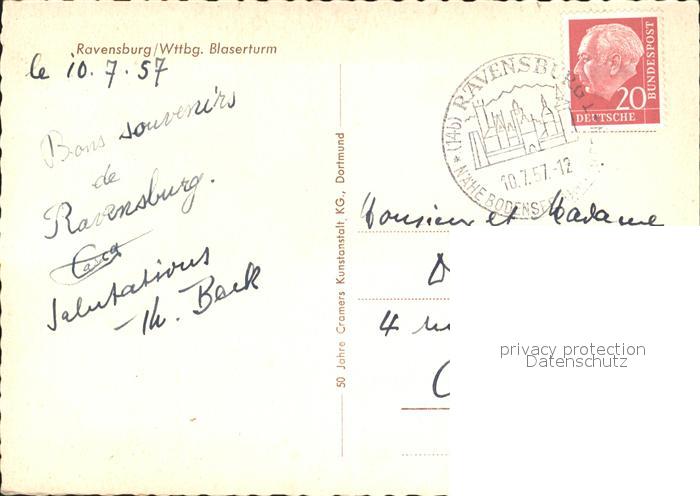 Ravensburg/Wttbg. Blaserturm
le 10.7.57
Bons souvenirs
de
Ravensburg.
Salutations
Th. Beck
50 Jahre Cramers Kunstanstalt KG., Dortmund
(14b) RAVENSBURG
10.7.57.-12
NÄHE BODENSEE
20
DEUTSCHE
BUNDESPOST
Monsieur et Madame
D
4 rue
privacy protection
Datenschutz